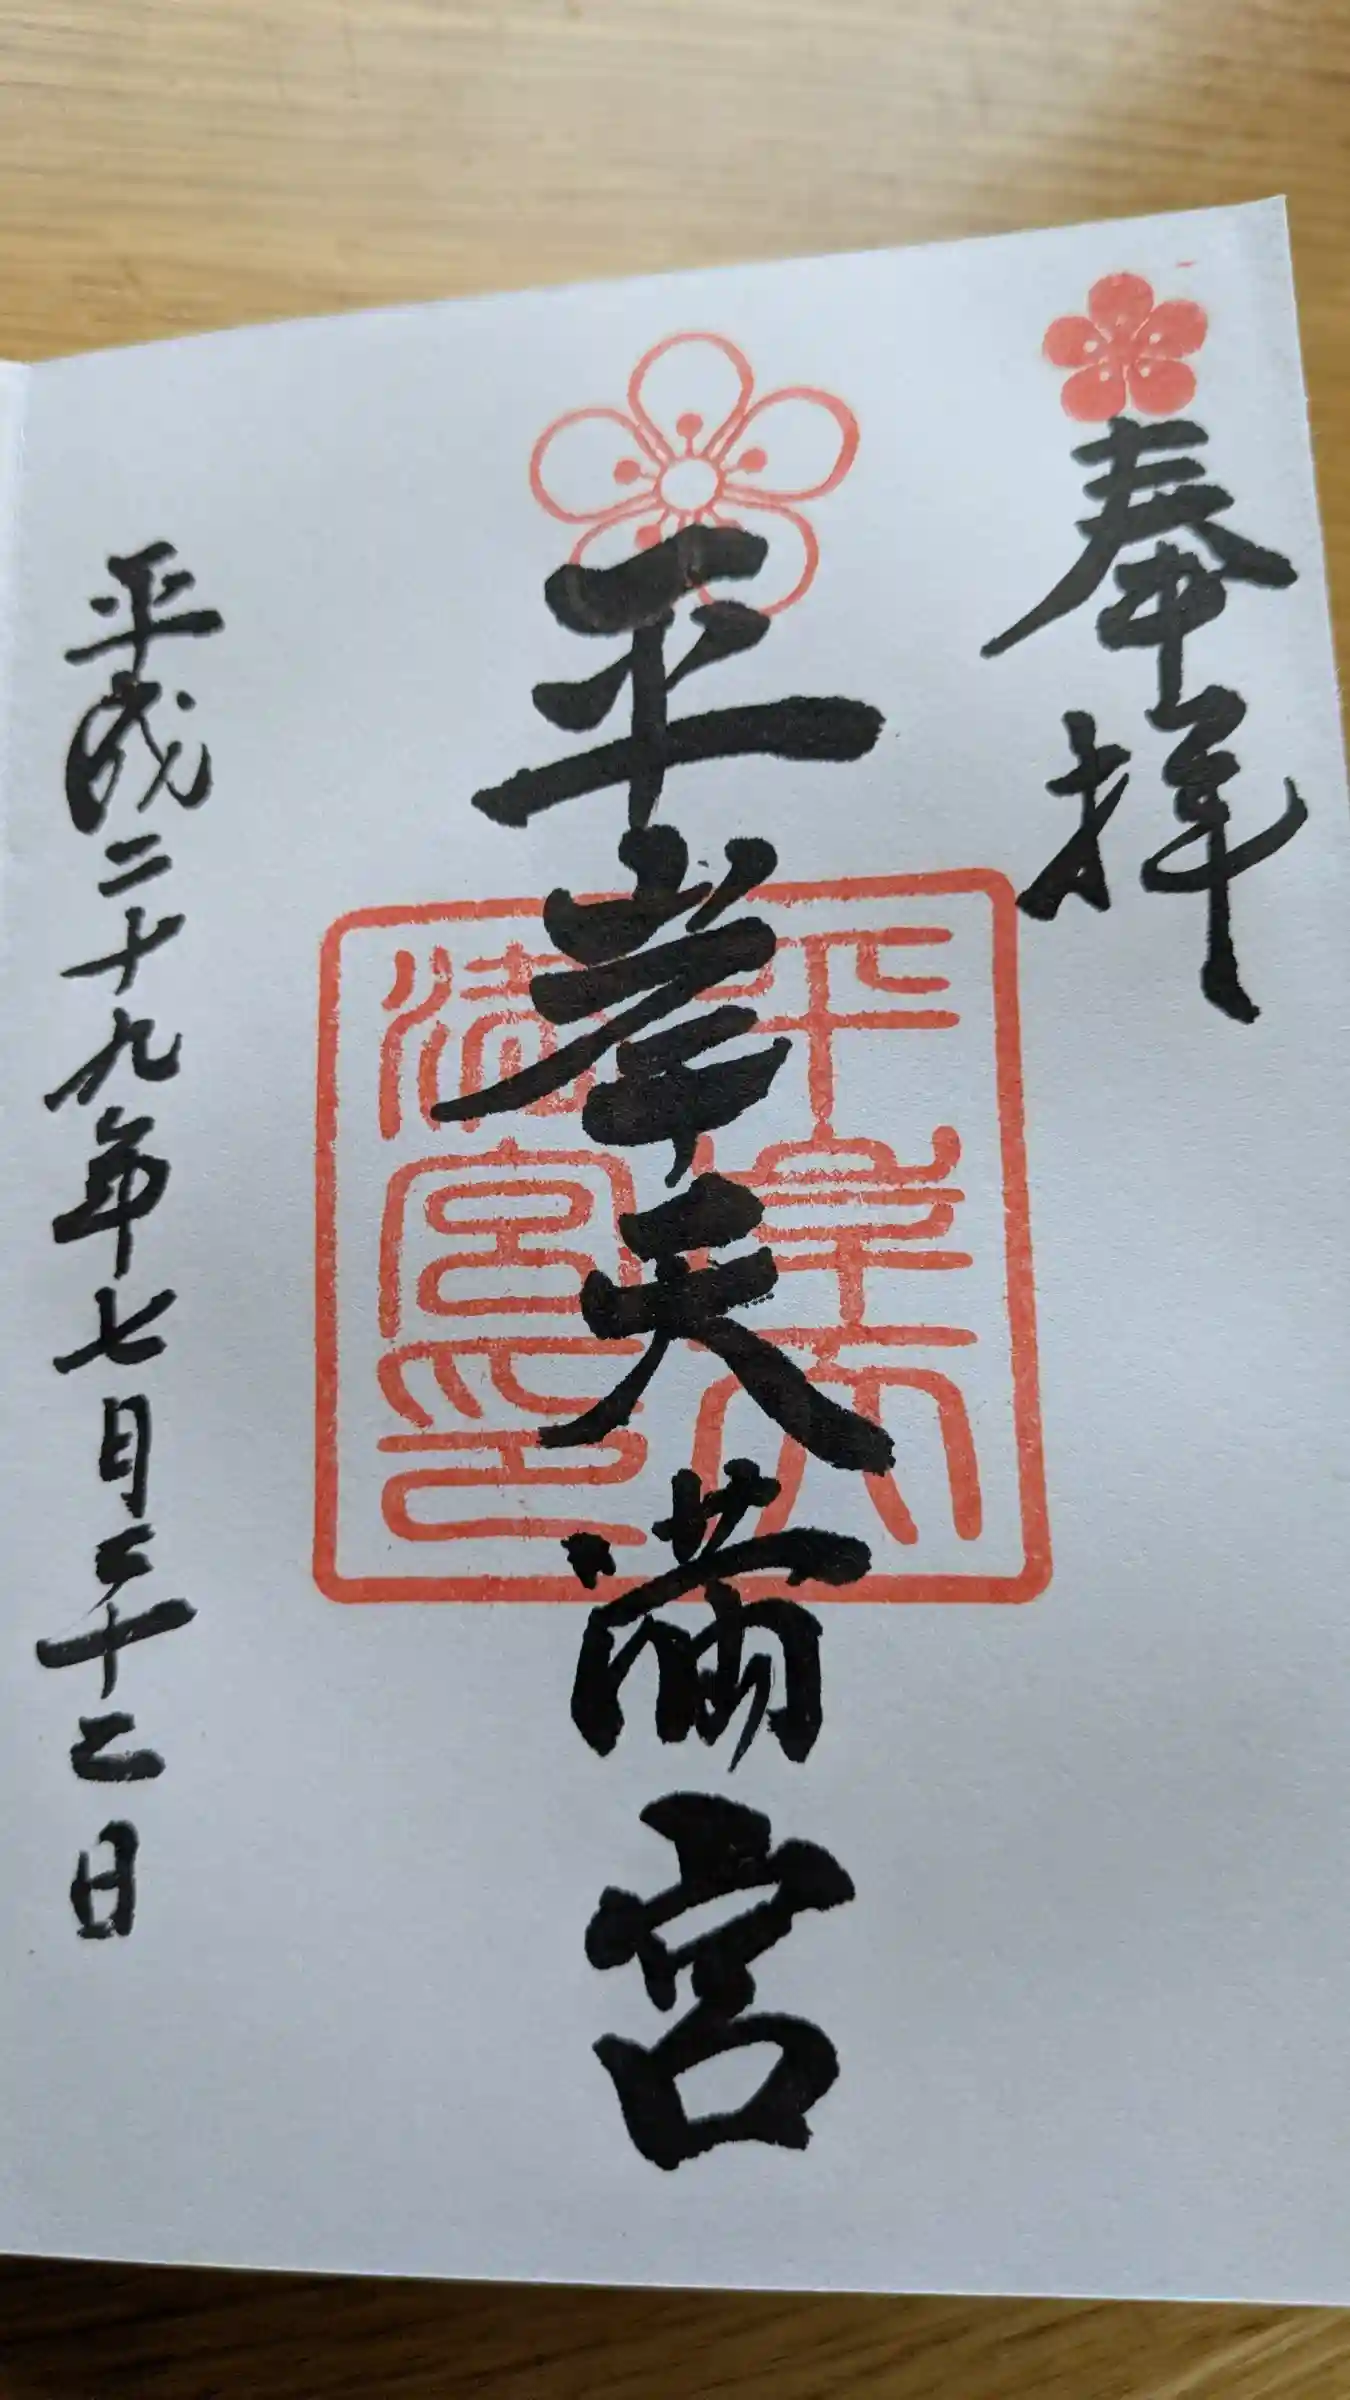 奉拝
平岸天満宮
平岸天
満宮印
平成二十九年七月二十二日